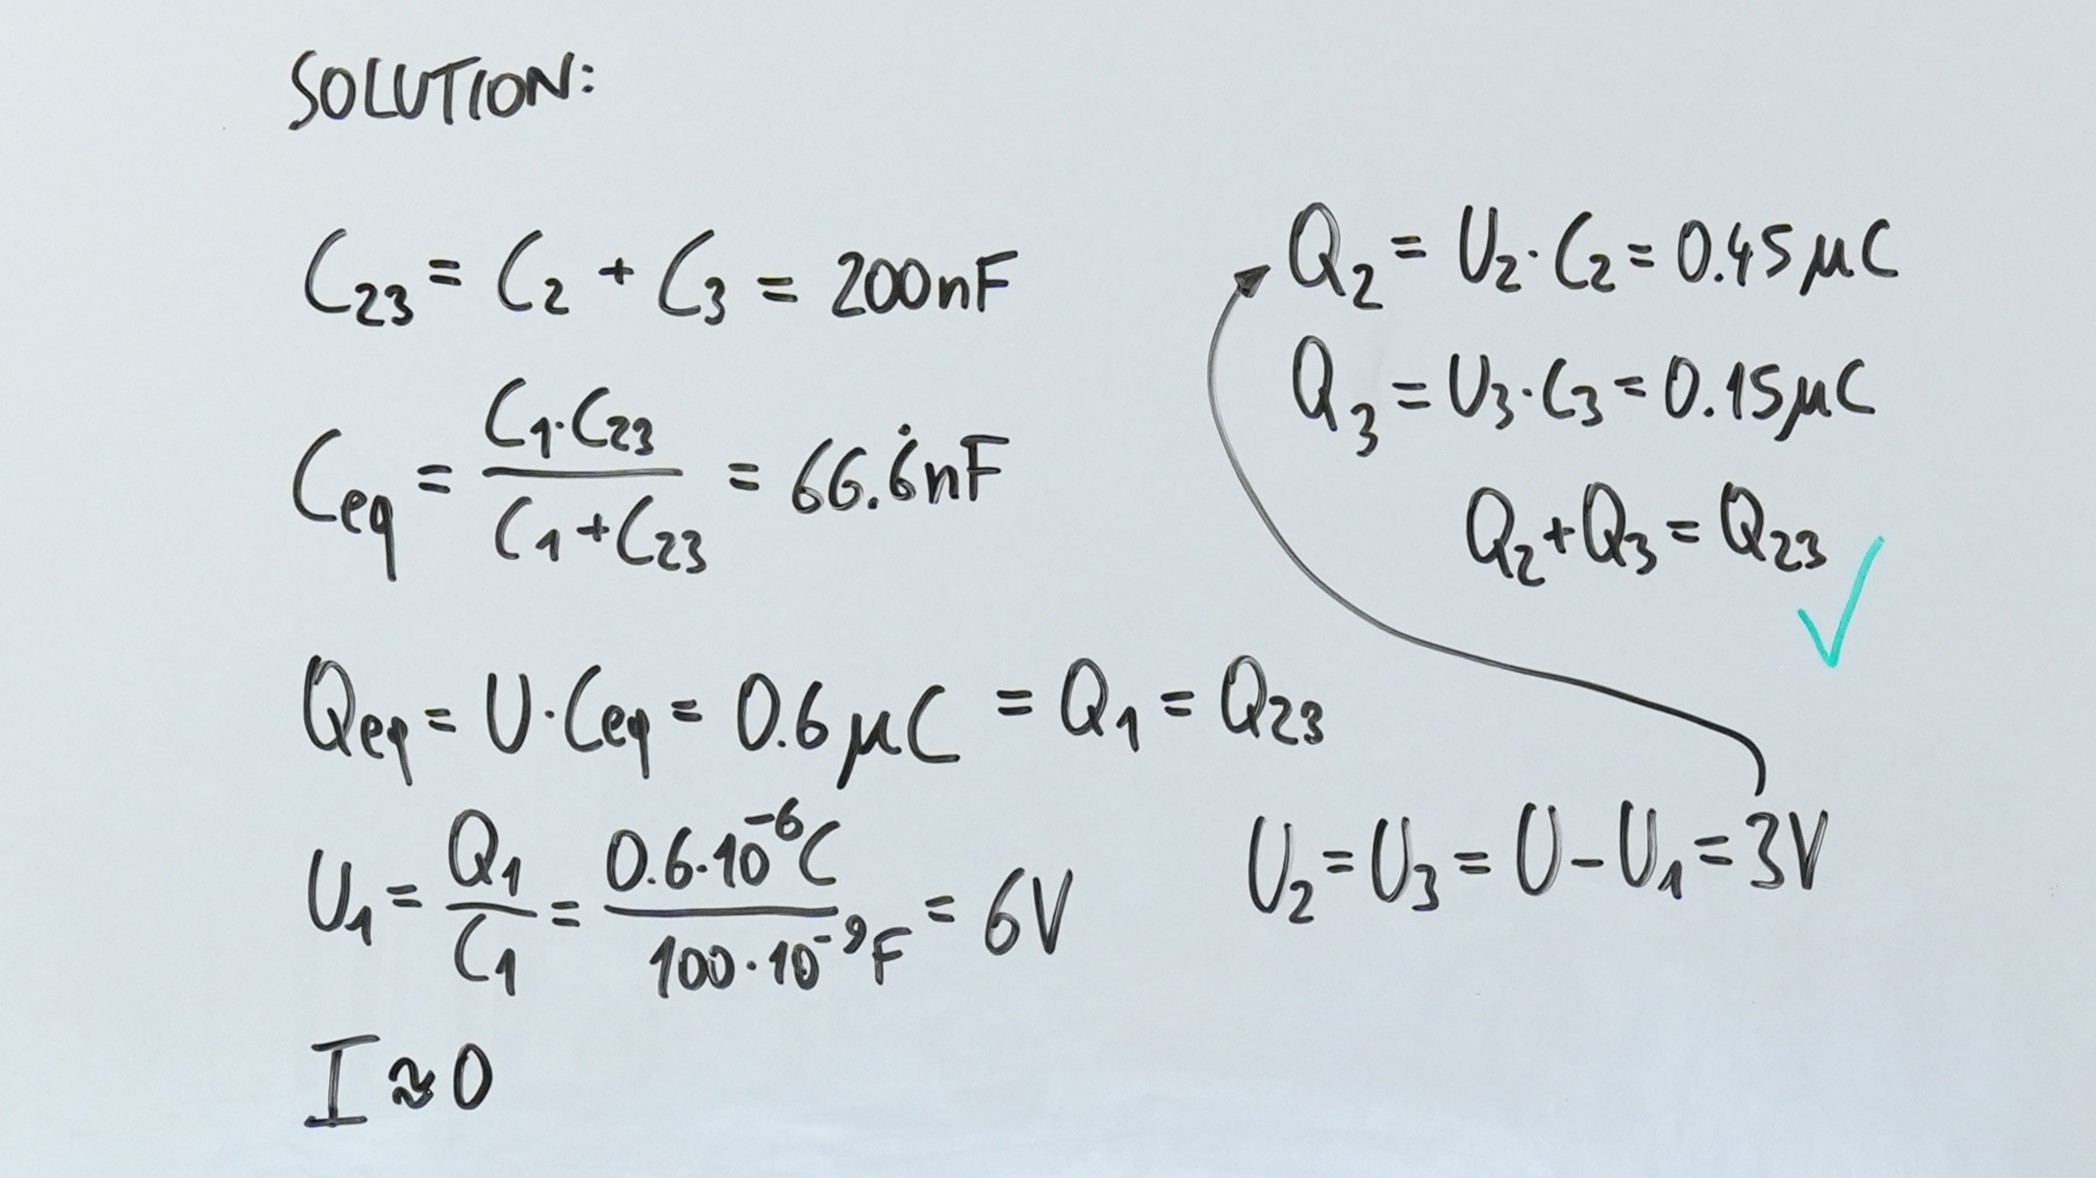 SOLUTION:
C₂₃ = C₂ + C₃ = 200nF
Ceq = C₁·C₂₃ / C₁+C₂₃ = 66.6̇nF
Qeq = U·Ceq = 0.6μC = Q₁ = Q₂₃
U₁ = Q₁/C₁ = 0.6·10⁻⁶C / 100·10⁻⁹F = 6V
I ≈ 0
U₂ = U₃ = U - U₁ = 3V
Q₂ = U₂·C₂ = 0.45μC
Q₃ = U₃·C₃ = 0.15μC
Q₂+Q₃ = Q₂₃ ✓